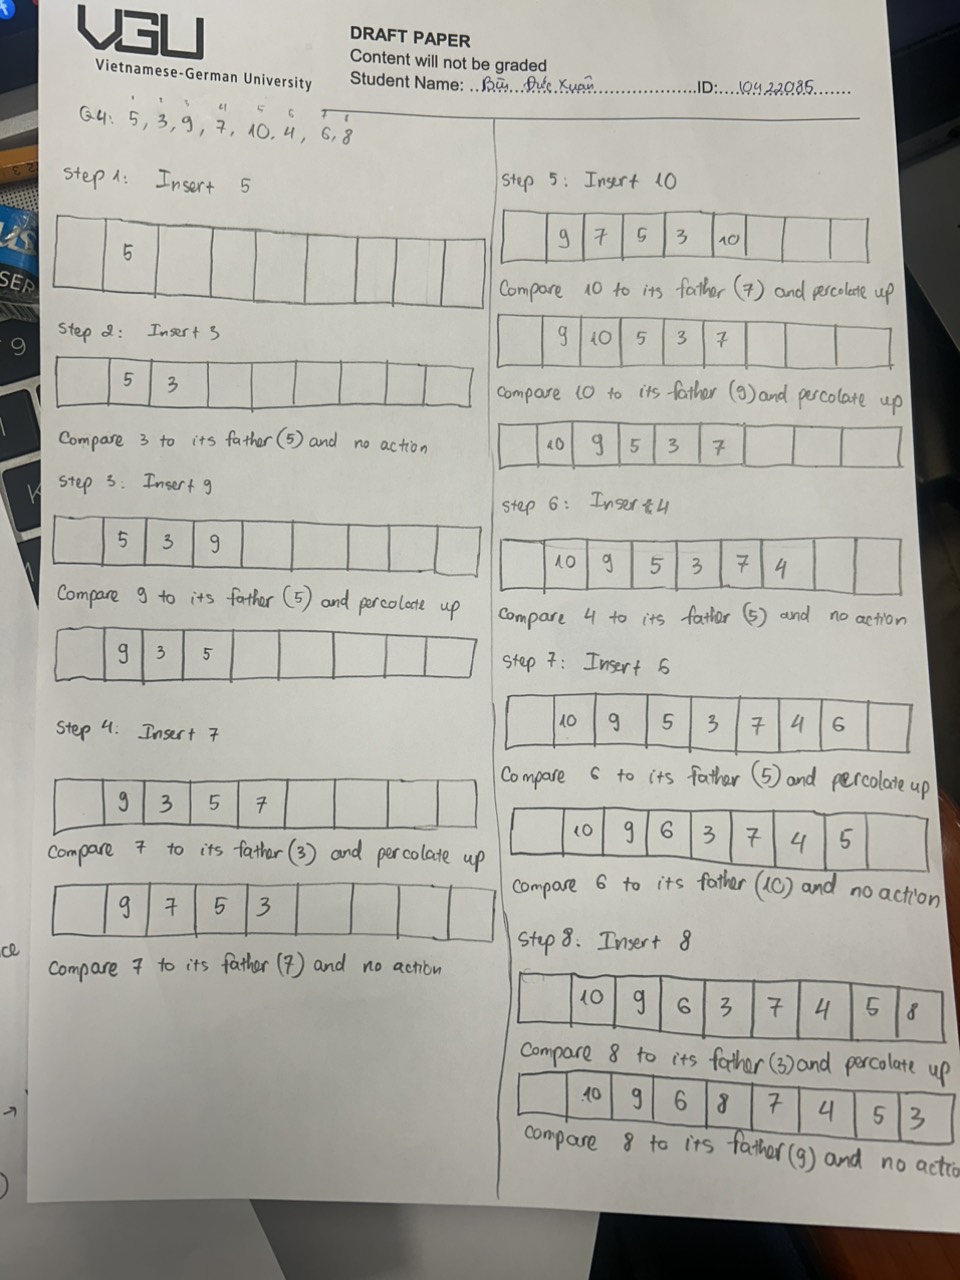 VGU
Vietnamese-German University
DRAFT PAPER
Content will not be graded
Student Name: ..Bùi Đức Xuân..........ID:....10422085.......
1 2 3 4 5 6 7 8
Q4: 5, 3, 9, 7, 10. 4, 6, 8
Step 1: Insert 5
5
Step 2: Insert 3
5 3
Compare 3 to its father (5) and no action
Step 3: Insert 9
5 3 9
Compare 9 to its father (5) and percolate up
9 3 5
Step 4: Insert 7
9 3 5 7
Compare 7 to its father (3) and percolate up
9 7 5 3
Compare 7 to its father (7) and no action
Step 5: Insert 10
9 7 5 3 10
Compare 10 to its father (7) and percolate up
9 10 5 3 7
Compare 10 to its father (9) and percolate up
10 9 5 3 7
Step 6: Insert 4
10 9 5 3 7 4
Compare 4 to its father (5) and no action
Step 7: Insert 6
10 9 5 3 7 4 6
Compare 6 to its father (5) and percolate up
10 9 6 3 7 4 5
Compare 6 to its father (10) and no action
Step 8: Insert 8
10 9 6 3 7 4 5 8
Compare 8 to its father (3) and percolate up
10 9 6 8 7 4 5 3
Compare 8 to its father (9) and no actio